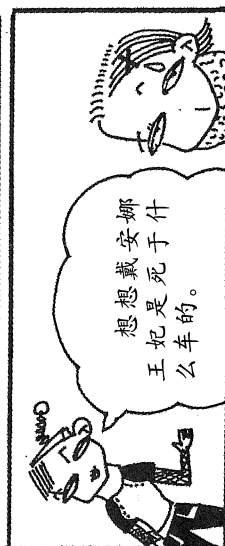 想想戴安娜
王妃是死于什
么车的。